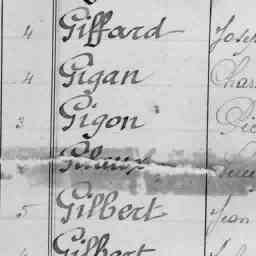 4 Giffard
4 Gigan
3 Gigon
5 Gilbert Jean
Gilbert